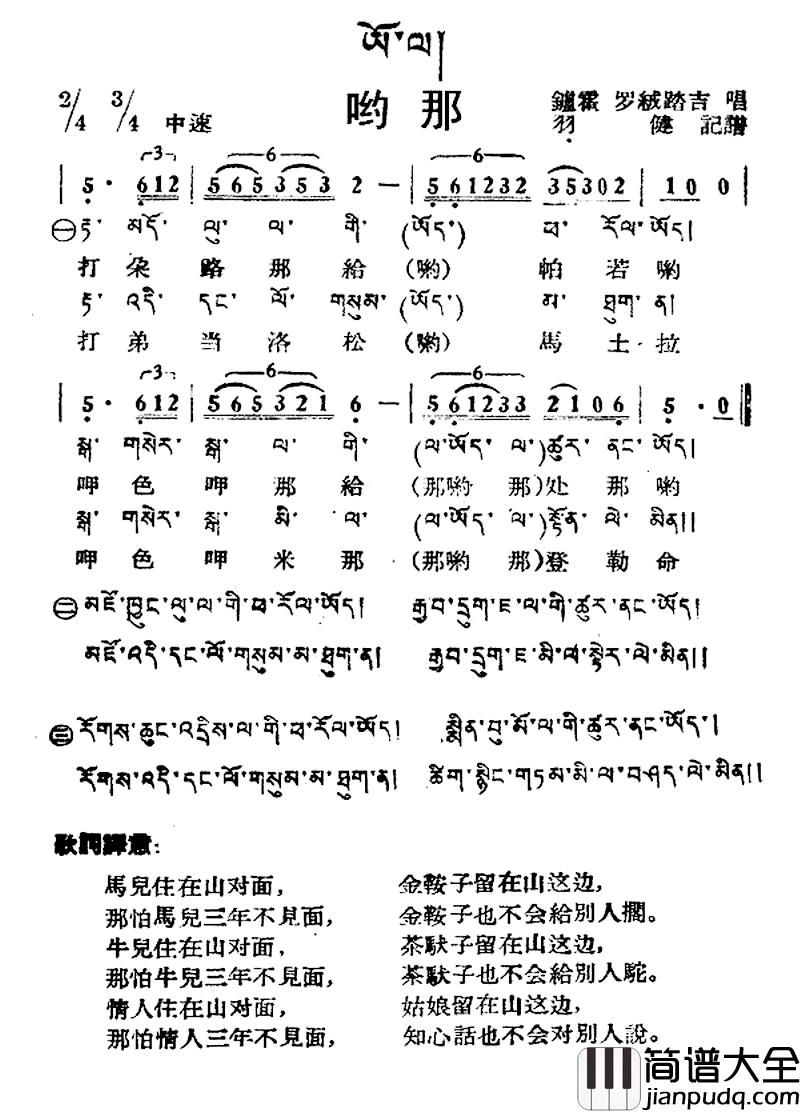 ཡོ་ལ།
哟那
2/4 3/4 中速
鑪霍 罗絨踏吉 唱
羽健 記譜
5· 612 | 565353 2 — | 561232 35302 | 10 0 |
㊀ རྟ་ མདོ་ ལུ་ ལ་ གི་ (ཡོད་) ཕ་ རོལ་ ཡོད།
打朵路那給(喲)帕若喲
རྟ་ འདི་ དང་ ལོ་ གསུམ་ (ཡོད་) མ་ ཐུག་ ན།
打弟当洛松(喲)馬土拉
5· 612 | 565321 6 — | 561233 2106 | 5 · 0 ‖
སྒ་ གསེར་ སྒ་ ལ་ གི་ (ལ་ཡོད་ ལ་)ཚུར་ ནང་ ཡོད།
呷色呷那給(那喲那)处那喲
སྒ་ གསེར་ སྒ་ མི་ ལ་ (ལ་ཡོད་ ལ་)སྟོན་ ལེ་ མིན།།
呷色呷米那(那喲那)登勒命
㊁ མཛོ་ཁྱུང་ལུ་ལ་གི་ཕ་རོལ་ཡོད། རྒྱབ་དྲུག་ཇ་ལ་གི་ཚུར་ནང་ཡོད།
མཛོ་འདི་དང་ལོ་གསུམ་མ་ཐུག་ན། རྒྱབ་དྲུག་ཇ་མི་ལ་སྟེར་ལེ་མིན།།
㊂ རོགས་ཆུང་འདྲིས་ལ་གི་ཕ་རོལ་ཡོད། སྨིན་བུ་མོ་ལ་གི་ཚུར་ནང་ཡོད།
རོགས་འདི་དང་ལོ་གསུམ་མ་ཐུག་ན། ཚིག་སྙིང་གཏམ་མི་ལ་བཤད་ལེ་མིན།།
歌詞譯意：
馬兒住在山对面， 金鞍子留在山这边，
那怕馬兒三年不見面， 金鞍子也不会給別人擱。
牛兒住在山对面， 茶馱子留在山这边，
那怕牛兒三年不見面， 茶馱子也不会給別人駝。
情人住在山对面， 姑娘留在山这边，
那怕情人三年不見面， 知心話也不会对別人說。
简谱大全
jianpudq.com